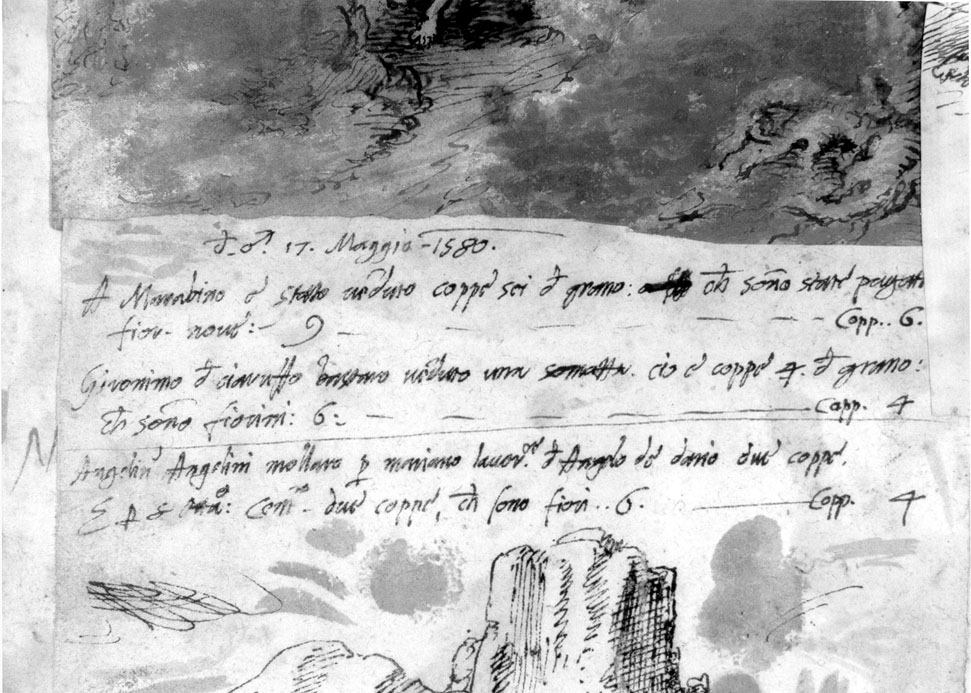 17. Maggio - 1580.
A Marabino e stato veduto coppe sei đ grano: ch sono state pagate
fior. nove: 9 Copp. 6.
Gironimo đ veduto una somatta. cio e coppe 4. đ grano:
ch sono fiorini: 6: Copp. 4
Angelin Angelini mollaro p mariano lavor.re đ Angelo de dario due coppe.
E due coppe, ch sono fiori.. 6. Copp. 4